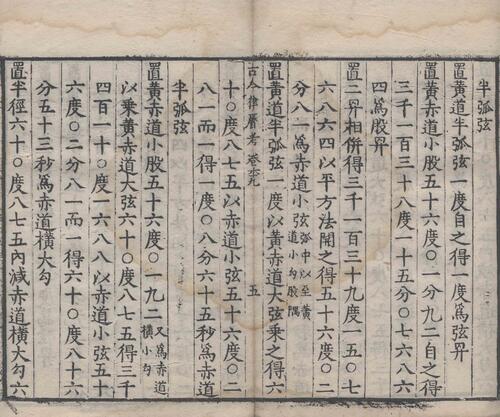 半弧弦
置黃道半弧弦一度自之得一度為弦昇
置黃赤道小股五十六度〇一分九二自之得
三千一百三十八度一十五分〇七六八六
四為股昇
置二昇相併得三千一百三十九度一五〇七
六八六四以平方法開之得五十六度〇二
分八一為赤道小弦弧中以至黃道小勾股隅
置黃道半弧弦一度以黃道大弦乘之得六
古今律曆考 卷六九 五
十〇度八七五以赤道小弦五十六度〇二
八一而一得一度〇八分六十五秒為赤道
半弧弦
置黃赤道小股五十六度〇一九二又為赤道橫小勾
以乘黃赤道大弦六十〇度八七五得三千
四百一十〇度一六八八以赤道小弦五十
六度〇二分八一而一得六十〇度八十六
分五十三秒為赤道橫大勾
置半徑六十〇度八七五內減赤道橫大勾六